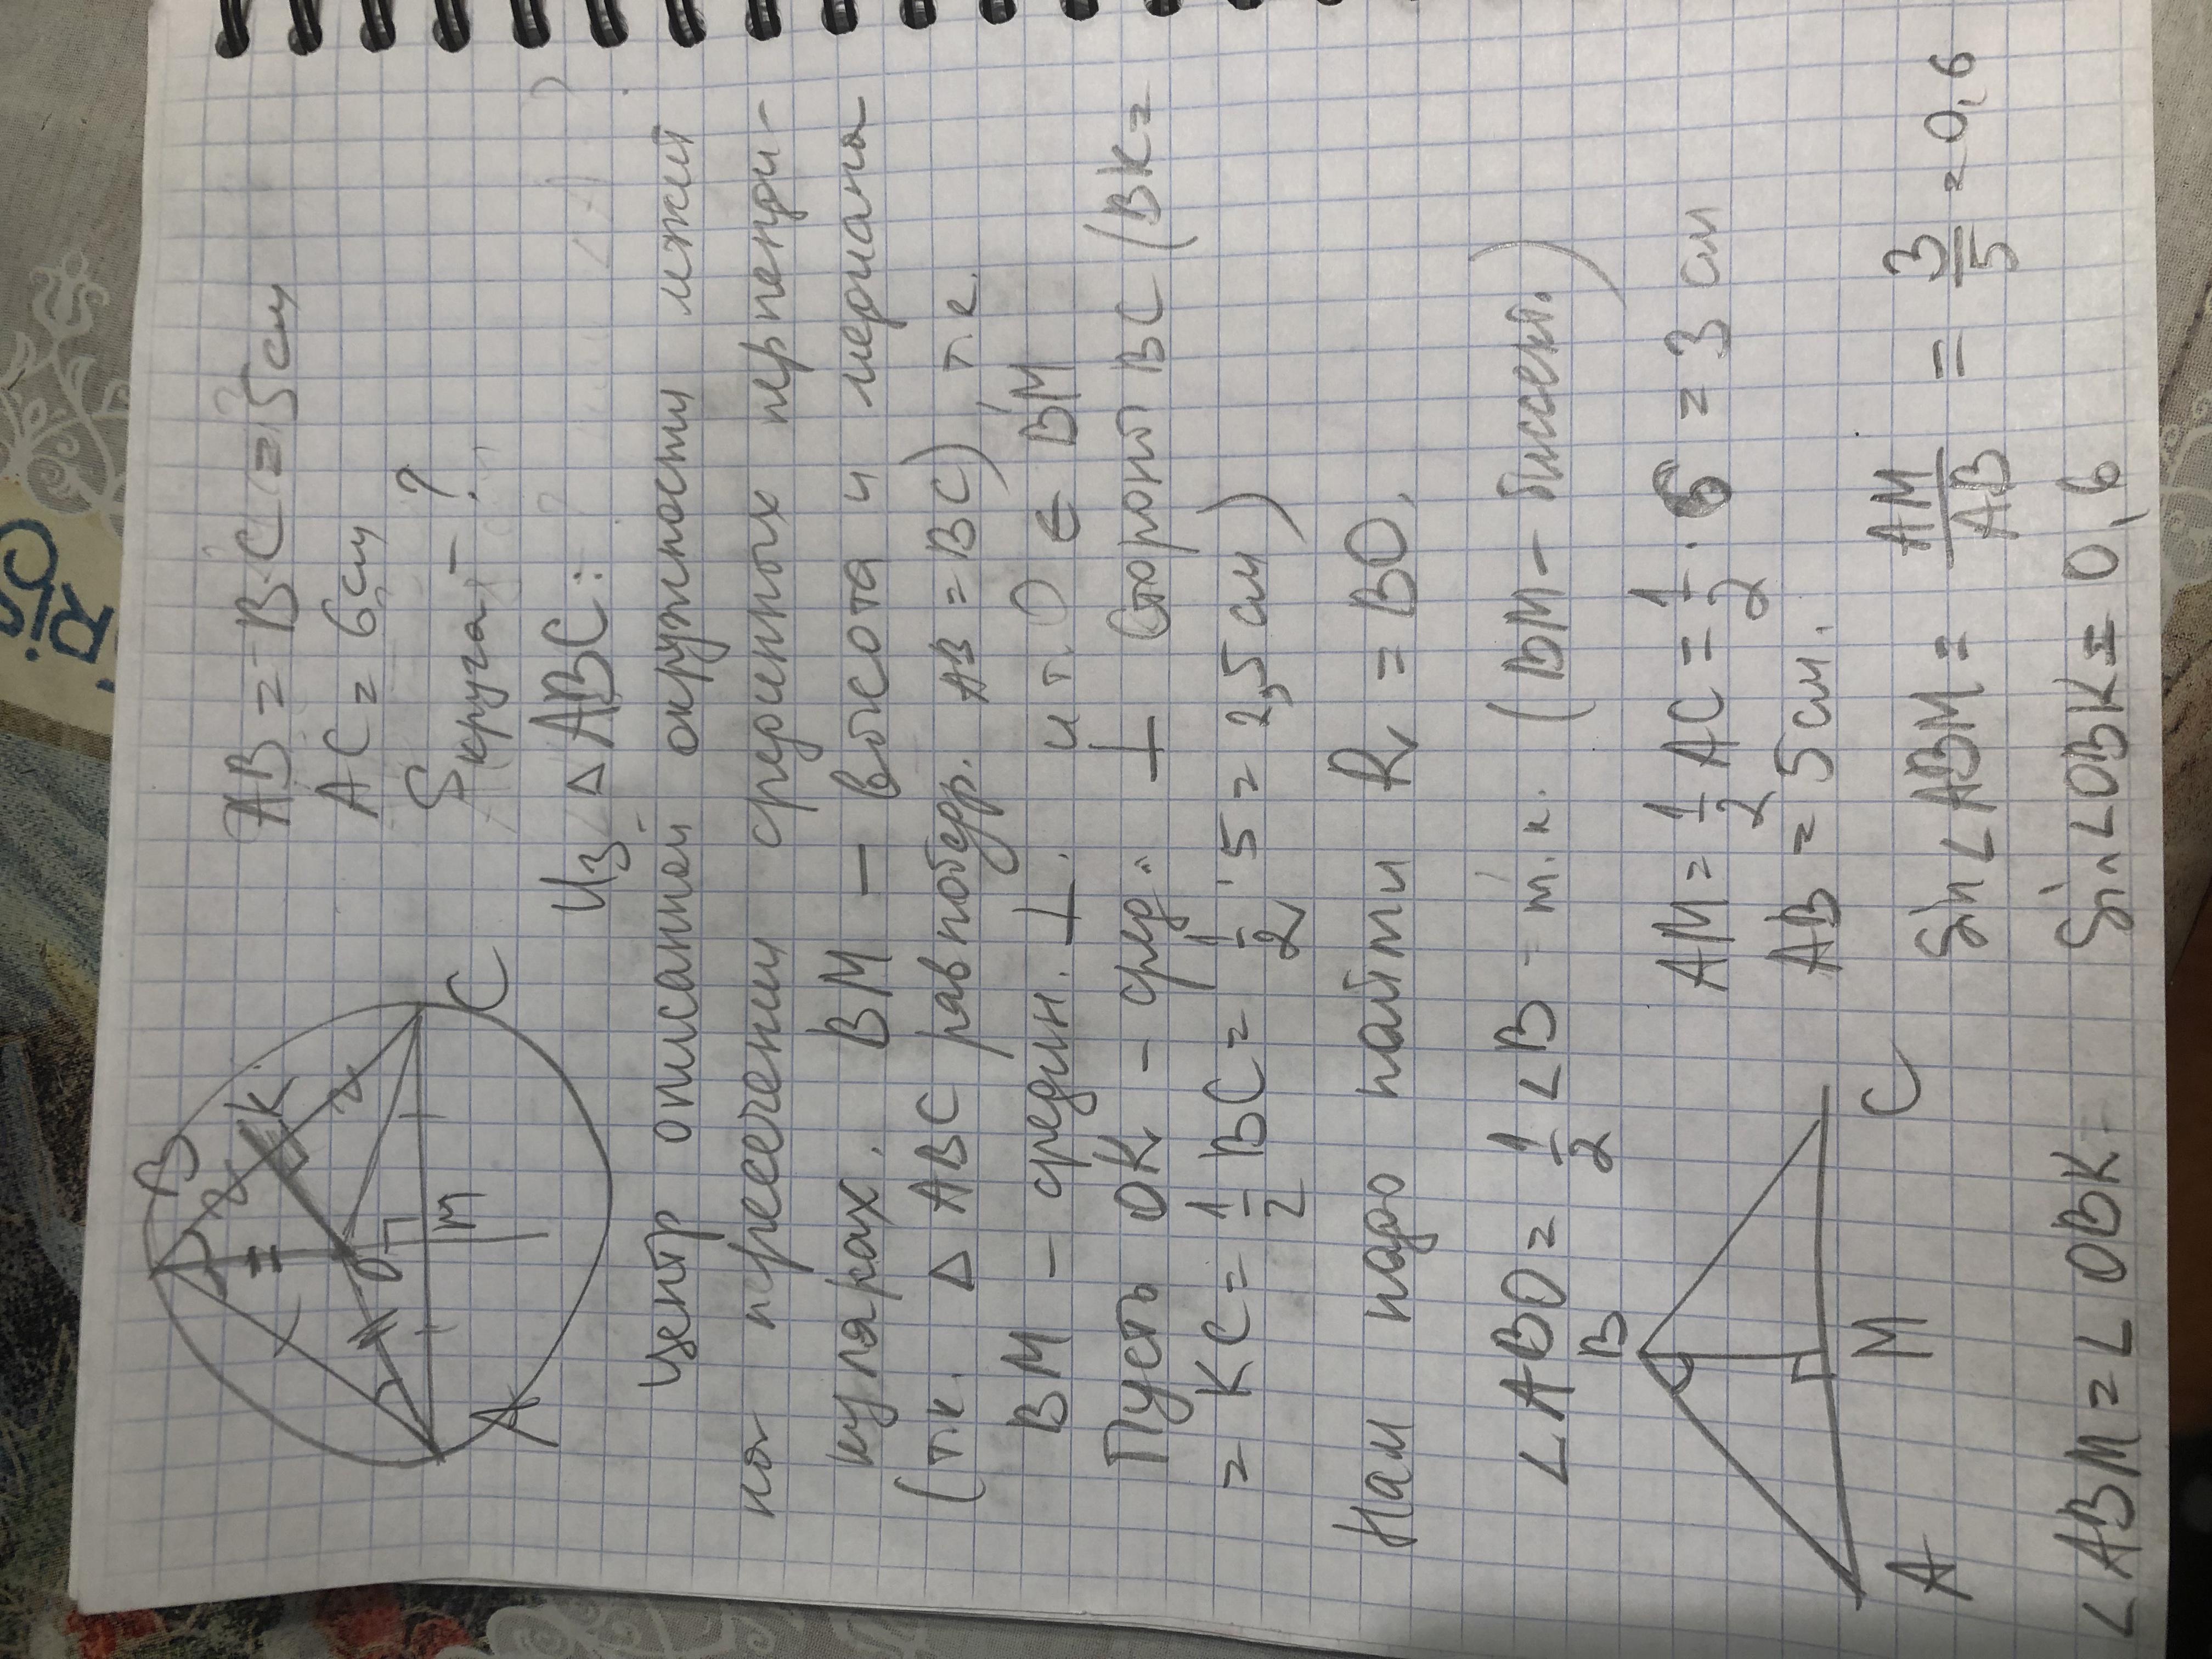 AB = BC = 5см
AC = 6см
Sкруга - ?
Из △ ABC:
B
K
O
M
A
C
Центр описанной окружности лежит
на пересечении серединных перпенди-
кулярах. BM – высота и медиана
(т.к. △ ABC равнобедр. AB = BC), т.е.
BM – средин. ⊥. и т. O ∈ BM
Пусть OK – сред. ⊥ стороны BC (BK =
= KC = 1/2 BC = 1/2 · 5 = 2,5 см)
Нам надо найти R = BO.
∠ABO = 1/2 ∠B – т.к. (BM – биссект.)
B
A
M
C
AM = 1/2 AC = 1/2 · 6 = 3 см
AB = 5 см.
Sin ∠ABM = AM/AB = 3/5 = 0,6
∠ABM = ∠OBK
Sin ∠OBK = 0,6